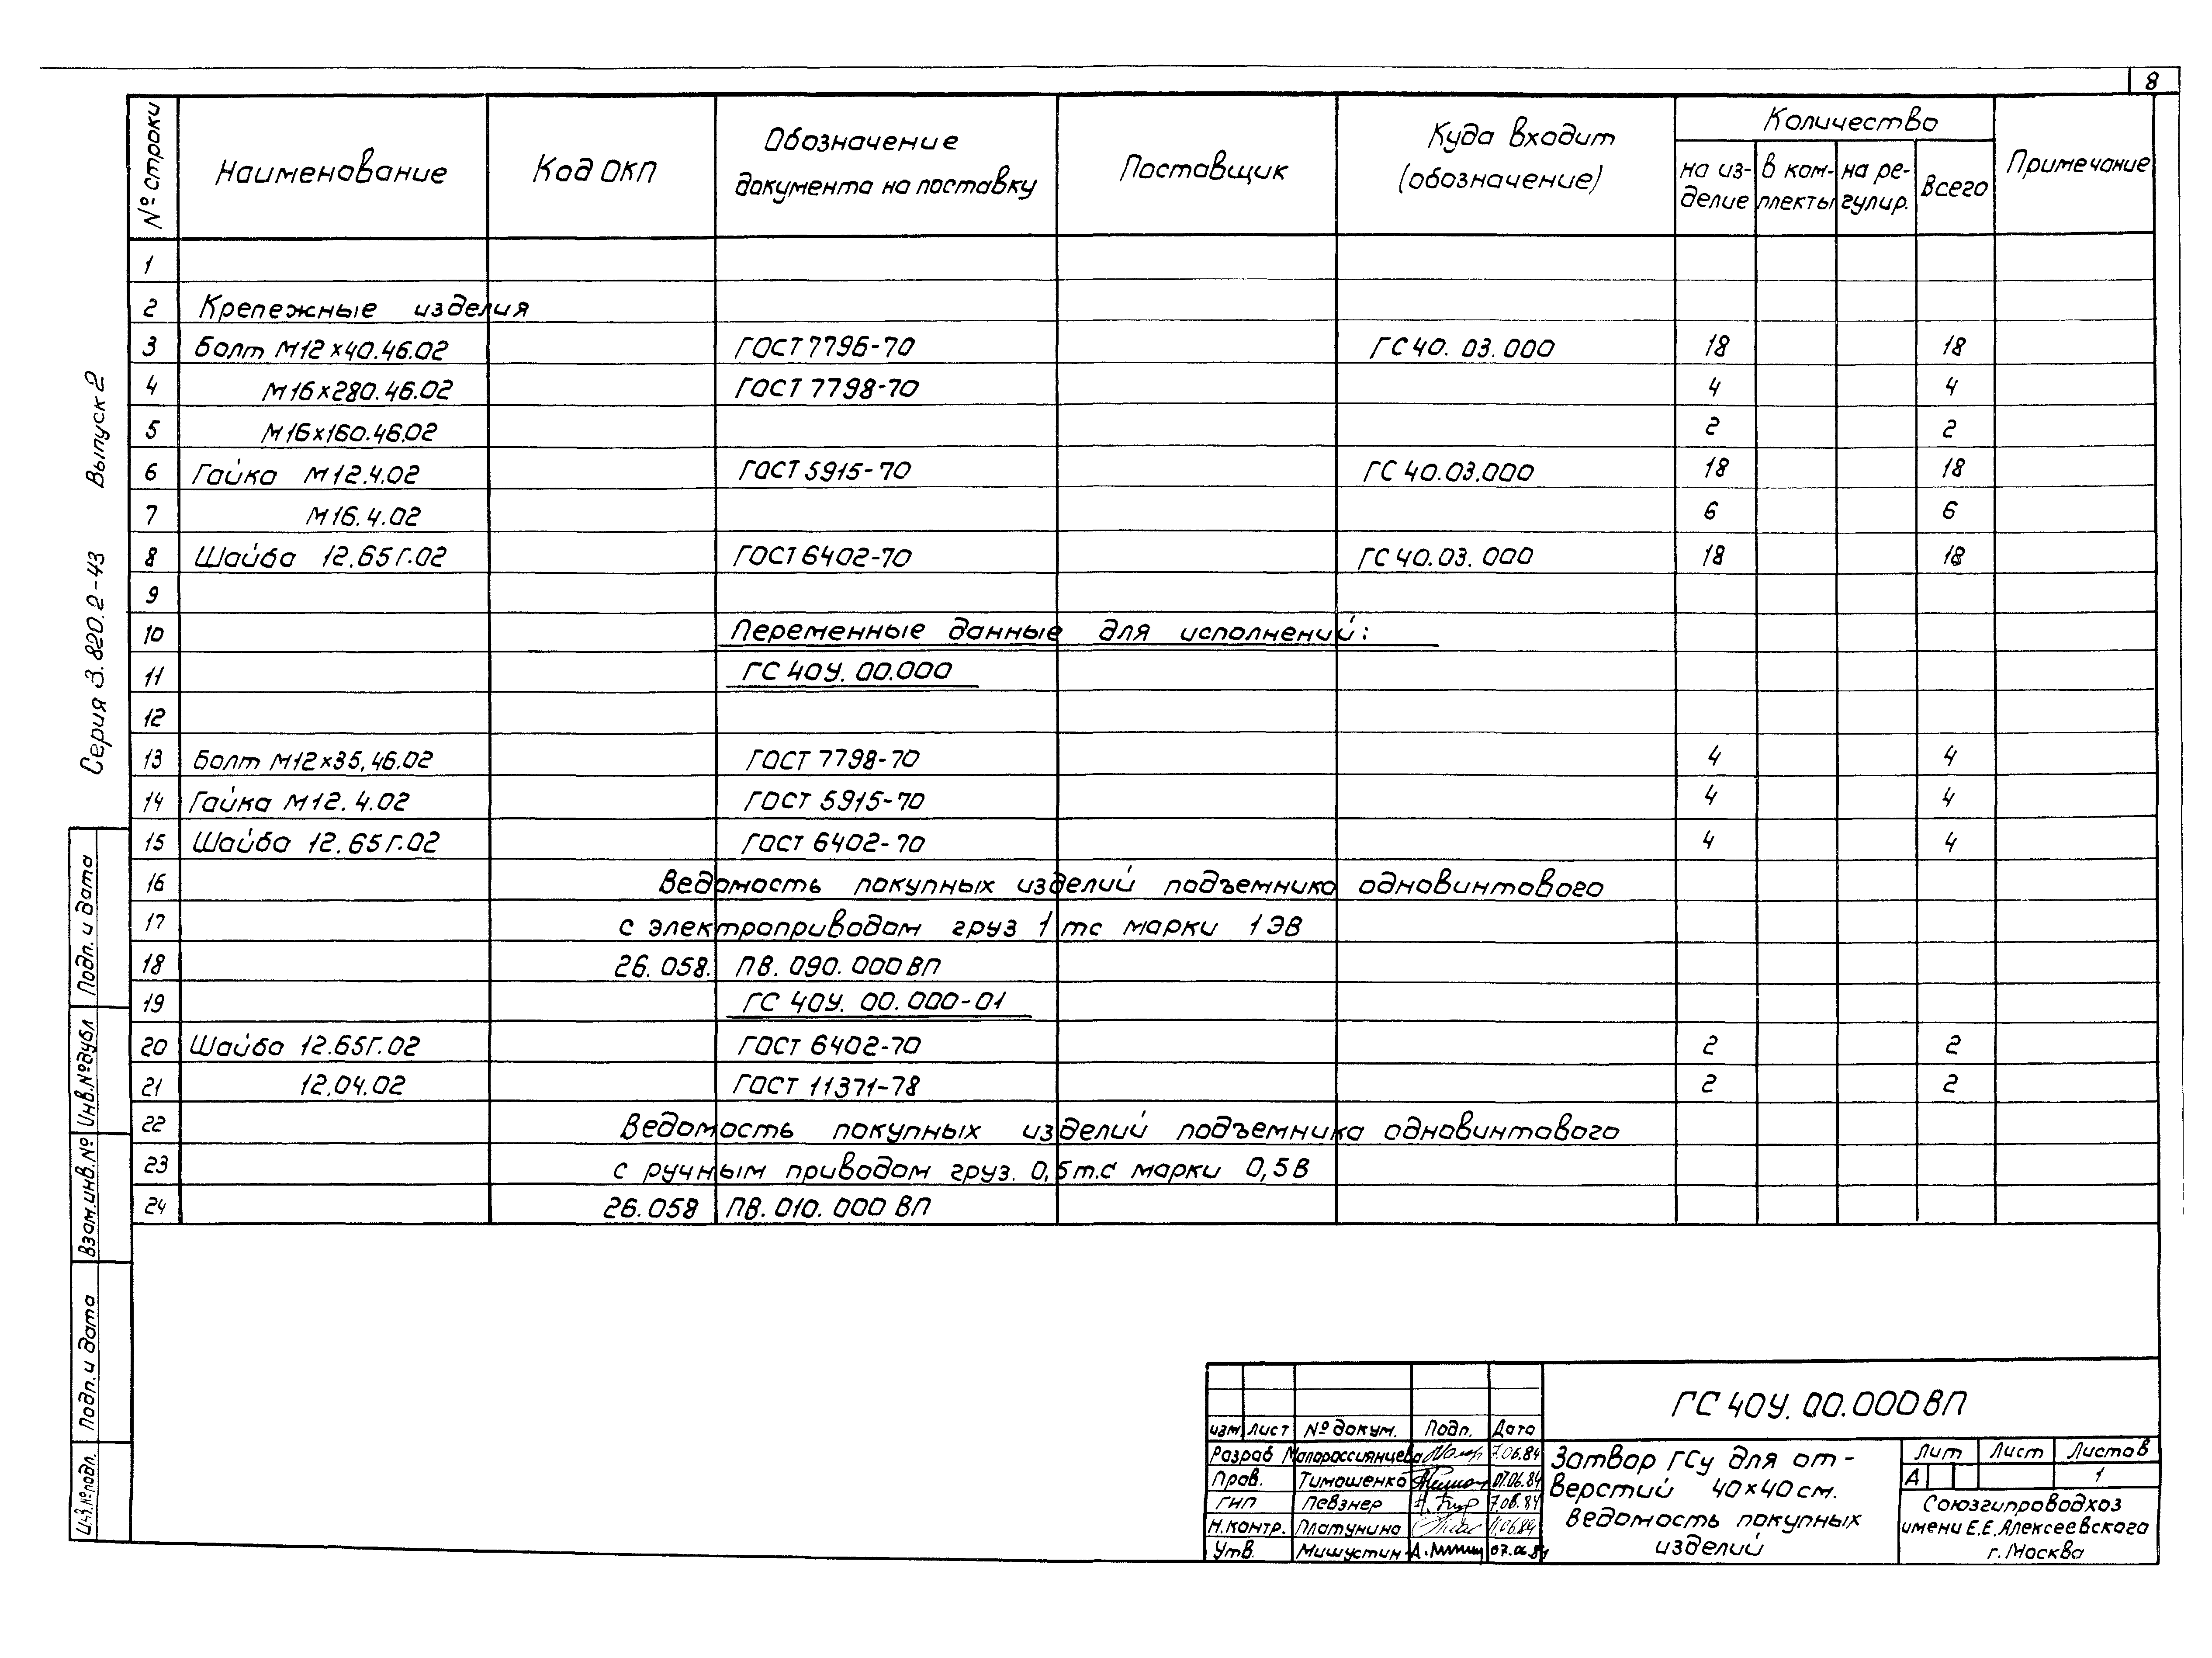 8
№ строки
Наименование
Код ОКП
Обозначение
документа на поставку
Поставщик
Куда входит
(обозначение)
Количество
на из-
делие
в ком-
плекты
на ре-
гулир.
Всего
Примечание
1
2 Крепежные изделия
3 Болт М12×40.46.02 ГОСТ 7796-70 ГС 40. 03. 000 18 18
4 М16×280.46.02 ГОСТ 7798-70 4 4
5 М16×160.46.02 2 2
6 Гайка М12.4.02 ГОСТ 5915-70 ГС 40.03.000 18 18
7 М16.4.02 6 6
8 Шайба 12.65Г.02 ГОСТ 6402-70 ГС 40.03. 000 18 18
9
10 Переменные данные для исполнений:
11 ГС 40У. 00.000
12
13 Болт М12×35,46.02 ГОСТ 7798-70 4 4
14 Гайка М12. 4.02 ГОСТ 5915-70 4 4
15 Шайба 12.65Г.02 ГОСТ 6402-70 4 4
16 Ведомость покупных изделий подъемника одновинтового
17 с электроприводом груз 1 тс марки 1ЭВ
18 26.058. ПВ. 090. 000 ВП
19 ГС 40У. 00. 000-01
20 Шайба 12.65Г.02 ГОСТ 6402-70 2 2
21 12.04.02 ГОСТ 11371-78 2 2
22 Ведомость покупных изделий подъемника одновинтового
23 с ручным приводом груз. 0,5т.с марки 0,5В
24 26.058 ПВ. 010. 000 ВП
Серия 3.820.2-43 Выпуск 2
Подп. и дата
Инв.№дубл
Взам.инв.№
Подп. и дата
Инв.№подл.
изм лист № докум. Подп. Дата
Разраб Малороссиянцева 7.06.84
Пров. Тимошенко 07.06.84
ГИП Певзнер 7.06.84
Н.контр. Платунина 11.06.84
Утв. Мишустин 07.06.84
ГС 40У. 00.000 ВП
Затвор ГСу для от-
верстий 40×40см.
Ведомость покупных
изделий
Лит Лист Листов
А 1
Союзгипроводхоз
имени Е.Е.Алексеевского
г. Москва